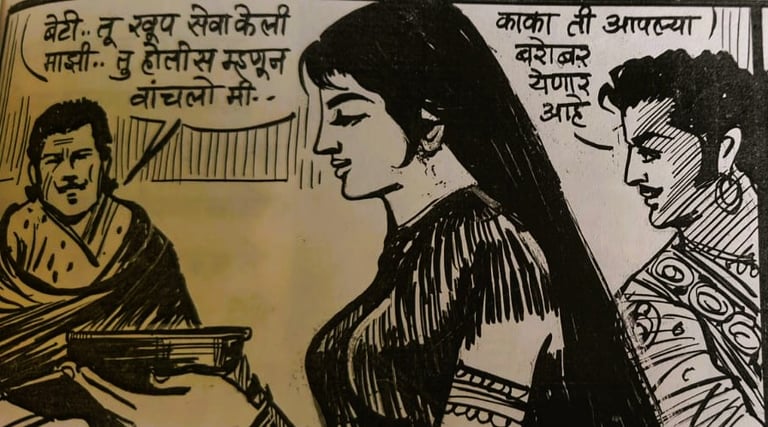 बेटी.. तू खूप सेवा केली
माझी.. तु होतीस म्हणून
वांचलो मी..
काका ती आपल्या
बरोबर
येणार
आहे